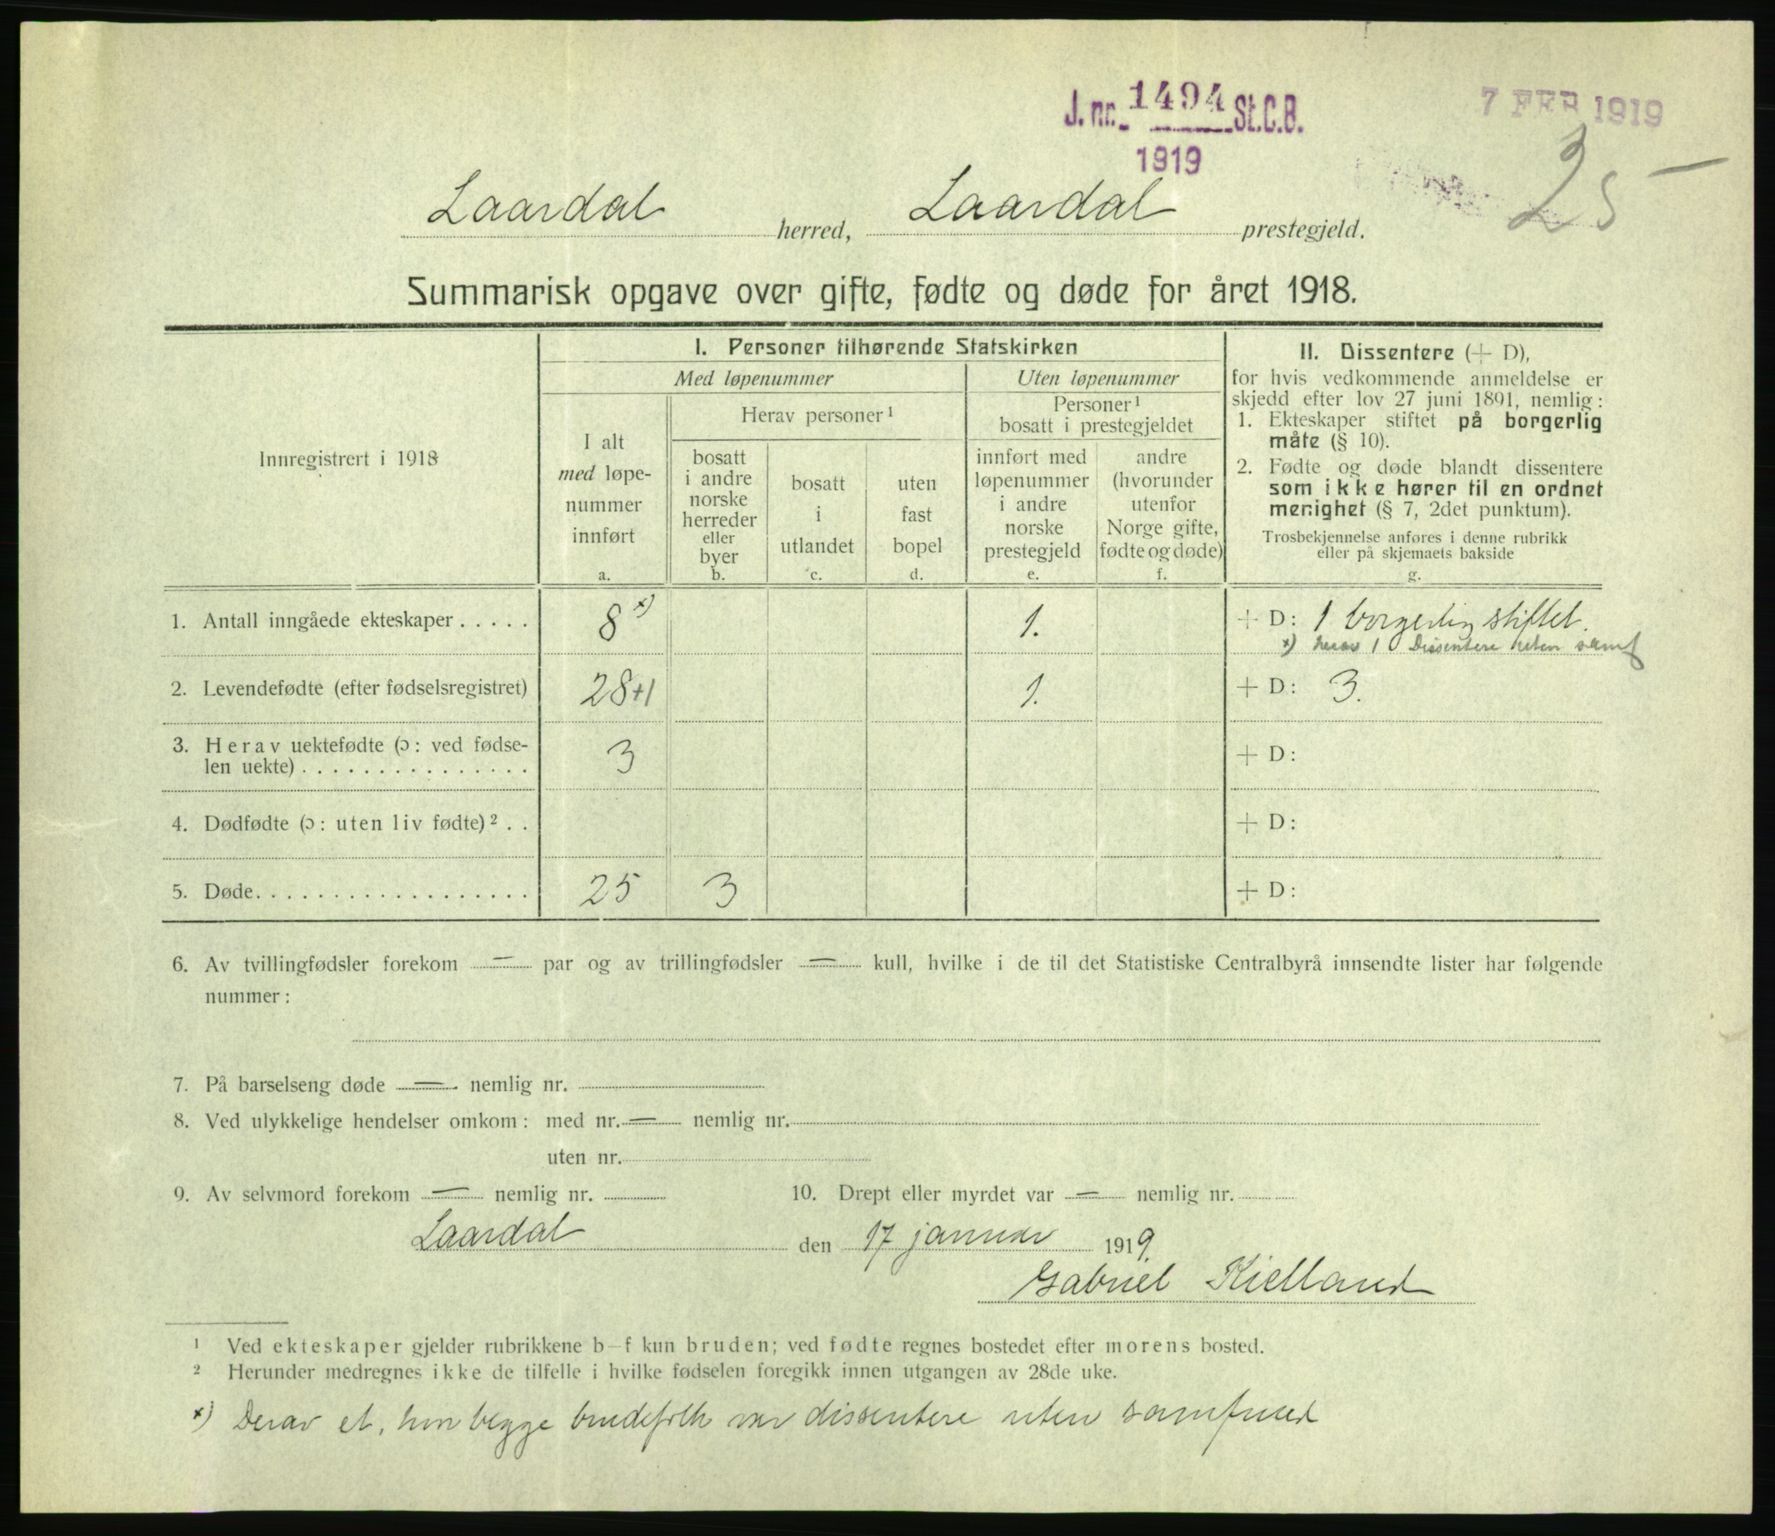 J. nr. 1494 St.C.B.
1919
7 FEB 1919
25
Laardal herred, Laardal prestegjeld.
Summarisk opgave over gifte, fødte og døde for året 1918.
Innregistrert i 1918
I. Personer tilhørende Statskirken
Med løpenummer
Uten løpenummer
I alt
med løpe-
nummer
innført
a.
Herav personer ¹
bosatt
i andre
norske
herreder
eller
byer
b.
bosatt
i
utlandet
c.
uten
fast
bopel
d.
Personer ¹
bosatt i prestegjeldet
innført med
løpenummer
i andre
norske
prestegjeld
e.
andre
(hvorunder
utenfor
Norge gifte,
fødte og døde)
f.
II. Dissentere (+ D),
for hvis vedkommende anmeldelse er
skjedd efter lov 27 juni 1891, nemlig:
1. Ekteskaper stiftet på borgerlig
måte (§ 10).
2. Fødte og døde blandt dissentere
som ikke hører til en ordnet
menighet (§ 7, 2det punktum).
Trosbekjennelse anføres i denne rubrikk
eller på skjemaets bakside
g.
1. Antall inngåede ekteskaper . . . . . 8 x) 1. + D: 1 borgerlig stiftet.
x) herav 1 Dissentere uten samf
2. Levendefødte (efter fødselsregistret) 28+1 1. + D: 3.
3. Herav uektefødte (ɔ: ved fødse-
len uekte) . . . . . . . . . . . . . . . 3 + D:
4. Dødfødte (ɔ: uten liv fødte) ² . . + D:
5. Døde. . . . . . . . . . . . . . . . . . 25 3 + D:
6. Av tvillingfødsler forekom — par og av trillingfødsler — kull, hvilke i de til det Statistiske Centralbyrå innsendte lister har følgende
nummer:
7. På barselseng døde — nemlig nr.
8. Ved ulykkelige hendelser omkom: med nr. — nemlig nr.
uten nr.
9. Av selvmord forekom — nemlig nr. 10. Drept eller myrdet var — nemlig nr.
Laardal den 17 januar 1919.
Gabriel Kielland
¹ Ved ekteskaper gjelder rubrikkene b–f kun bruden; ved fødte regnes bostedet efter morens bosted.
² Herunder medregnes ikke de tilfelle i hvilke fødselen foregikk innen utgangen av 28de uke.
x) Derav et, hvor begge brudefolk var dissentere uten samfund